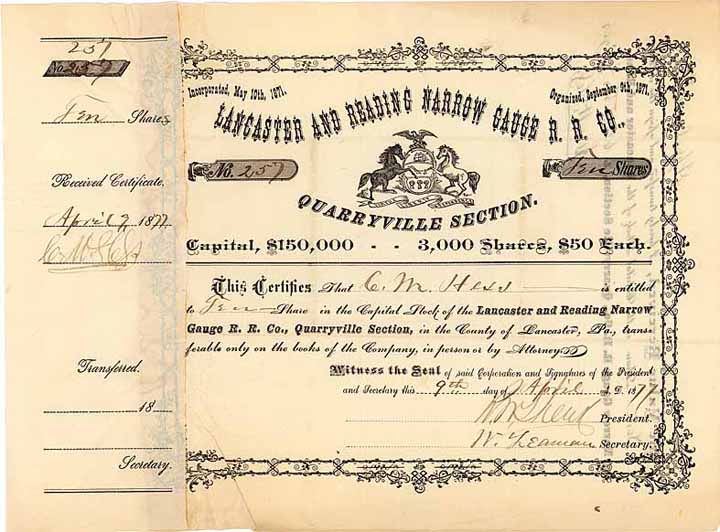 257
No. 257
Ten Shares
Received Certificate.
April 9 1877
C. M. Hess
Transferred.
18
Secretary.
Incorporated, May 10th, 1871.
Organized, September 9th, 1871.
LANCASTER AND READING NARROW GAUGE R. R. CO.,
No. 257
Ten Shares
QUARRYVILLE SECTION.
Capital, $150,000 - - 3,000 Shares, $50 Each.
This Certifies That C. M. Hess is entitled
to Ten Share in the Capital Stock of the Lancaster and Reading Narrow
Gauge R. R. Co., Quarryville Section, in the County of Lancaster, Pa., trans-
ferable only on the books of the Company, in person or by Attorney
Witness the Seal of said Corporation and Signatures of the President
and Secretary this 9th day of April A.D. 1877
President.
W. Leaman Secretary.